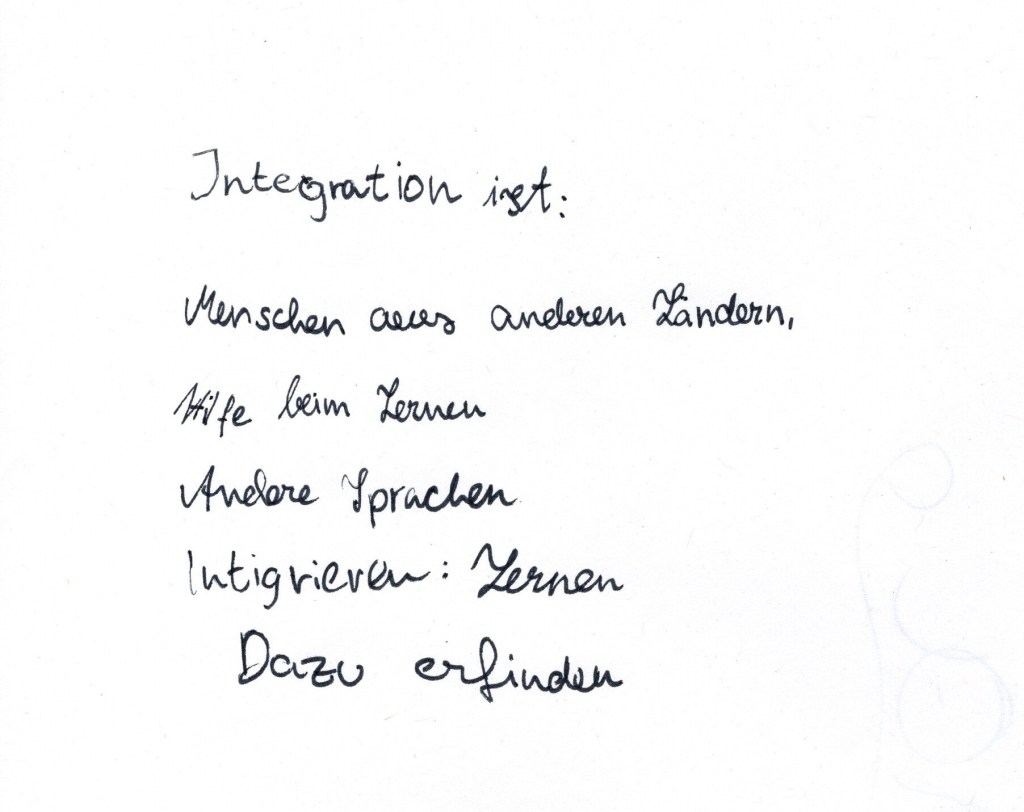 Integration ist:
Menschen aus anderen Ländern,
Hilfe beim Lernen
Andere Sprachen
Intigrieren: Lernen
Dazu erfinden